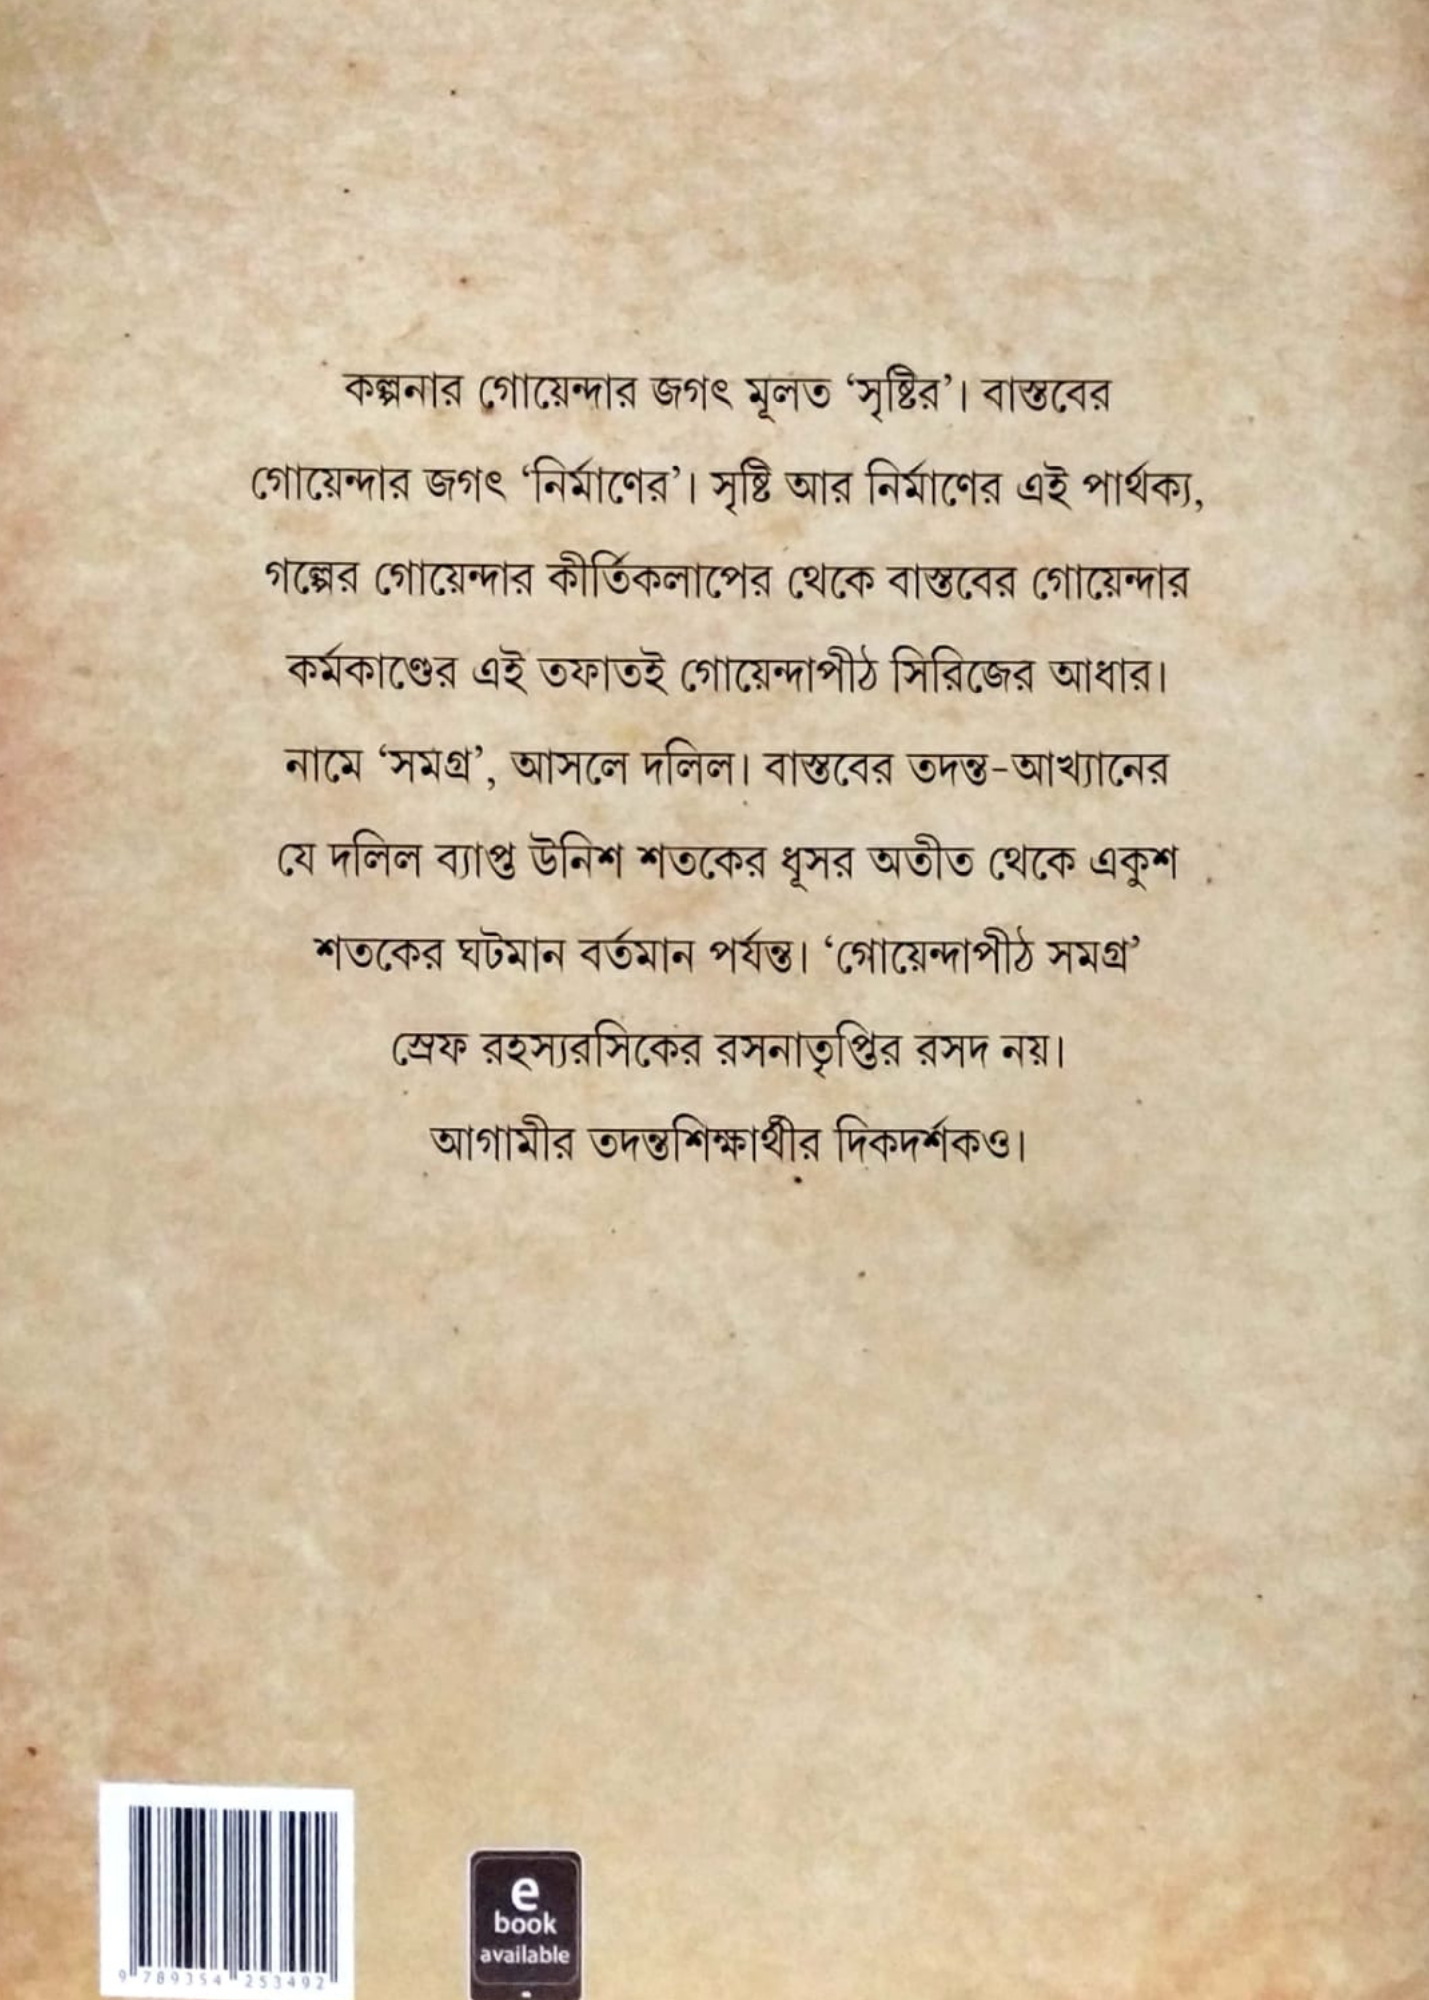 কল্পনার গোয়েন্দার জগৎ মূলত ‘সৃষ্টির’। বাস্তবের
গোয়েন্দার জগৎ ‘নির্মাণের’। সৃষ্টি আর নির্মাণের এই পার্থক্য,
গল্পের গোয়েন্দার কীর্তিকলাপের থেকে বাস্তবের গোয়েন্দার
কর্মকাণ্ডের এই তফাতই গোয়েন্দাপীঠ সিরিজের আধার।
নামে ‘সমগ্র’, আসলে দলিল। বাস্তবের তদন্ত-আখ্যানের
যে দলিল ব্যাপ্ত উনিশ শতকের ধূসর অতীত থেকে একুশ
শতকের ঘটমান বর্তমান পর্যন্ত। ‘গোয়েন্দাপীঠ সমগ্র’
স্রেফ রহস্যরসিকের রসনাতৃপ্তির রসদ নয়।
আগামীর তদন্তশিক্ষার্থীর দিকদর্শকও।
9 789354 253492
e
book
available